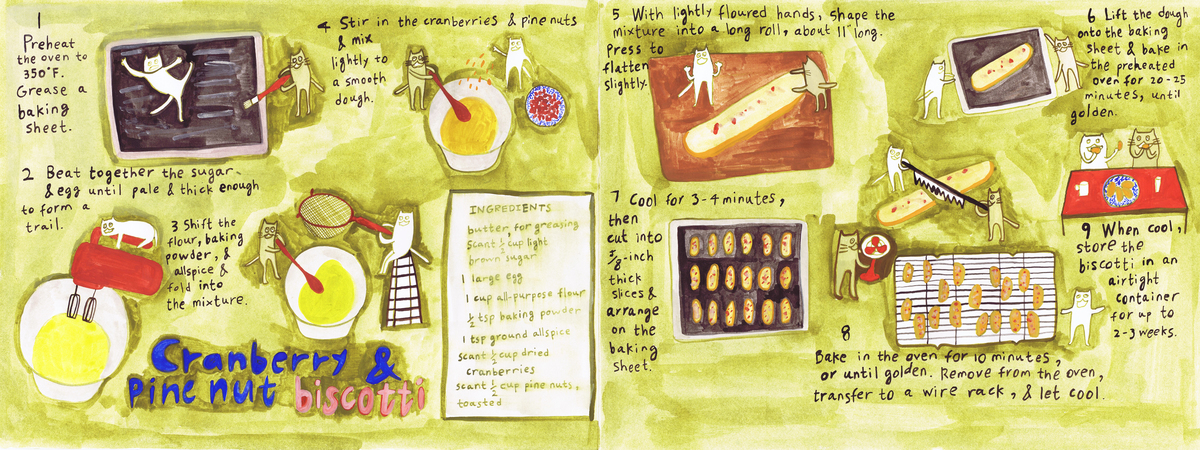 1
Preheat
the oven to
350°F.
Grease a
baking
sheet.
2 Beat together the sugar
& egg until pale & thick enough
to form a
trail.
3 Shift the
flour, baking
powder, &
allspice &
fold into
the mixture.
4 Stir in the cranberries & pine nuts
& mix
lightly to
a smooth
dough.
Cranberry &
pine nut biscotti
INGREDIENTS
butter for greasing
scant ½ cup light
brown sugar
1 large egg
1 cup all-purpose flour
½ tsp baking powder
1 tsp ground allspice
scant ½ cup dried
cranberries
scant ½ cup pine nuts,
toasted
5 With lightly floured hands, shape the
mixture into a long roll, about 11" long.
Press to
flatten
slightly.
6 Lift the dough
onto the baking
sheet & bake in
the preheated
oven for 20-25
minutes, until
golden.
7 Cool for 3-4 minutes,
then
cut into
⅝-inch
thick
slices &
arrange
on the
baking
sheet.
8
Bake in the oven for 10 minutes,
or until golden. Remove from the oven,
transfer to a wire rack, & let cool.
9 When cool,
store the
biscotti in an
airtight
container
for up to
2-3 weeks.